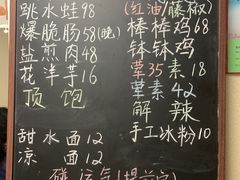 跳水蛙98
爆脆肠58(晚)
盐煎肉48
花洋芋16
顶饱
甜水面12
凉面12
(红油/藤椒)
棒棒鸡68
钵钵鸡
荤35素18
荤素42
解辣
手工冰粉10
碰运气